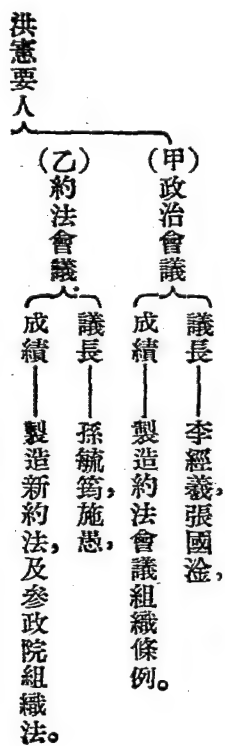 洪憲要人
（甲）政治會議
議長——李經羲，張國淦，
成績——製造約法會議組織條例。
（乙）約法會議
議長——孫毓筠，施愚，
成績——製造新約法，及參政院組織法。